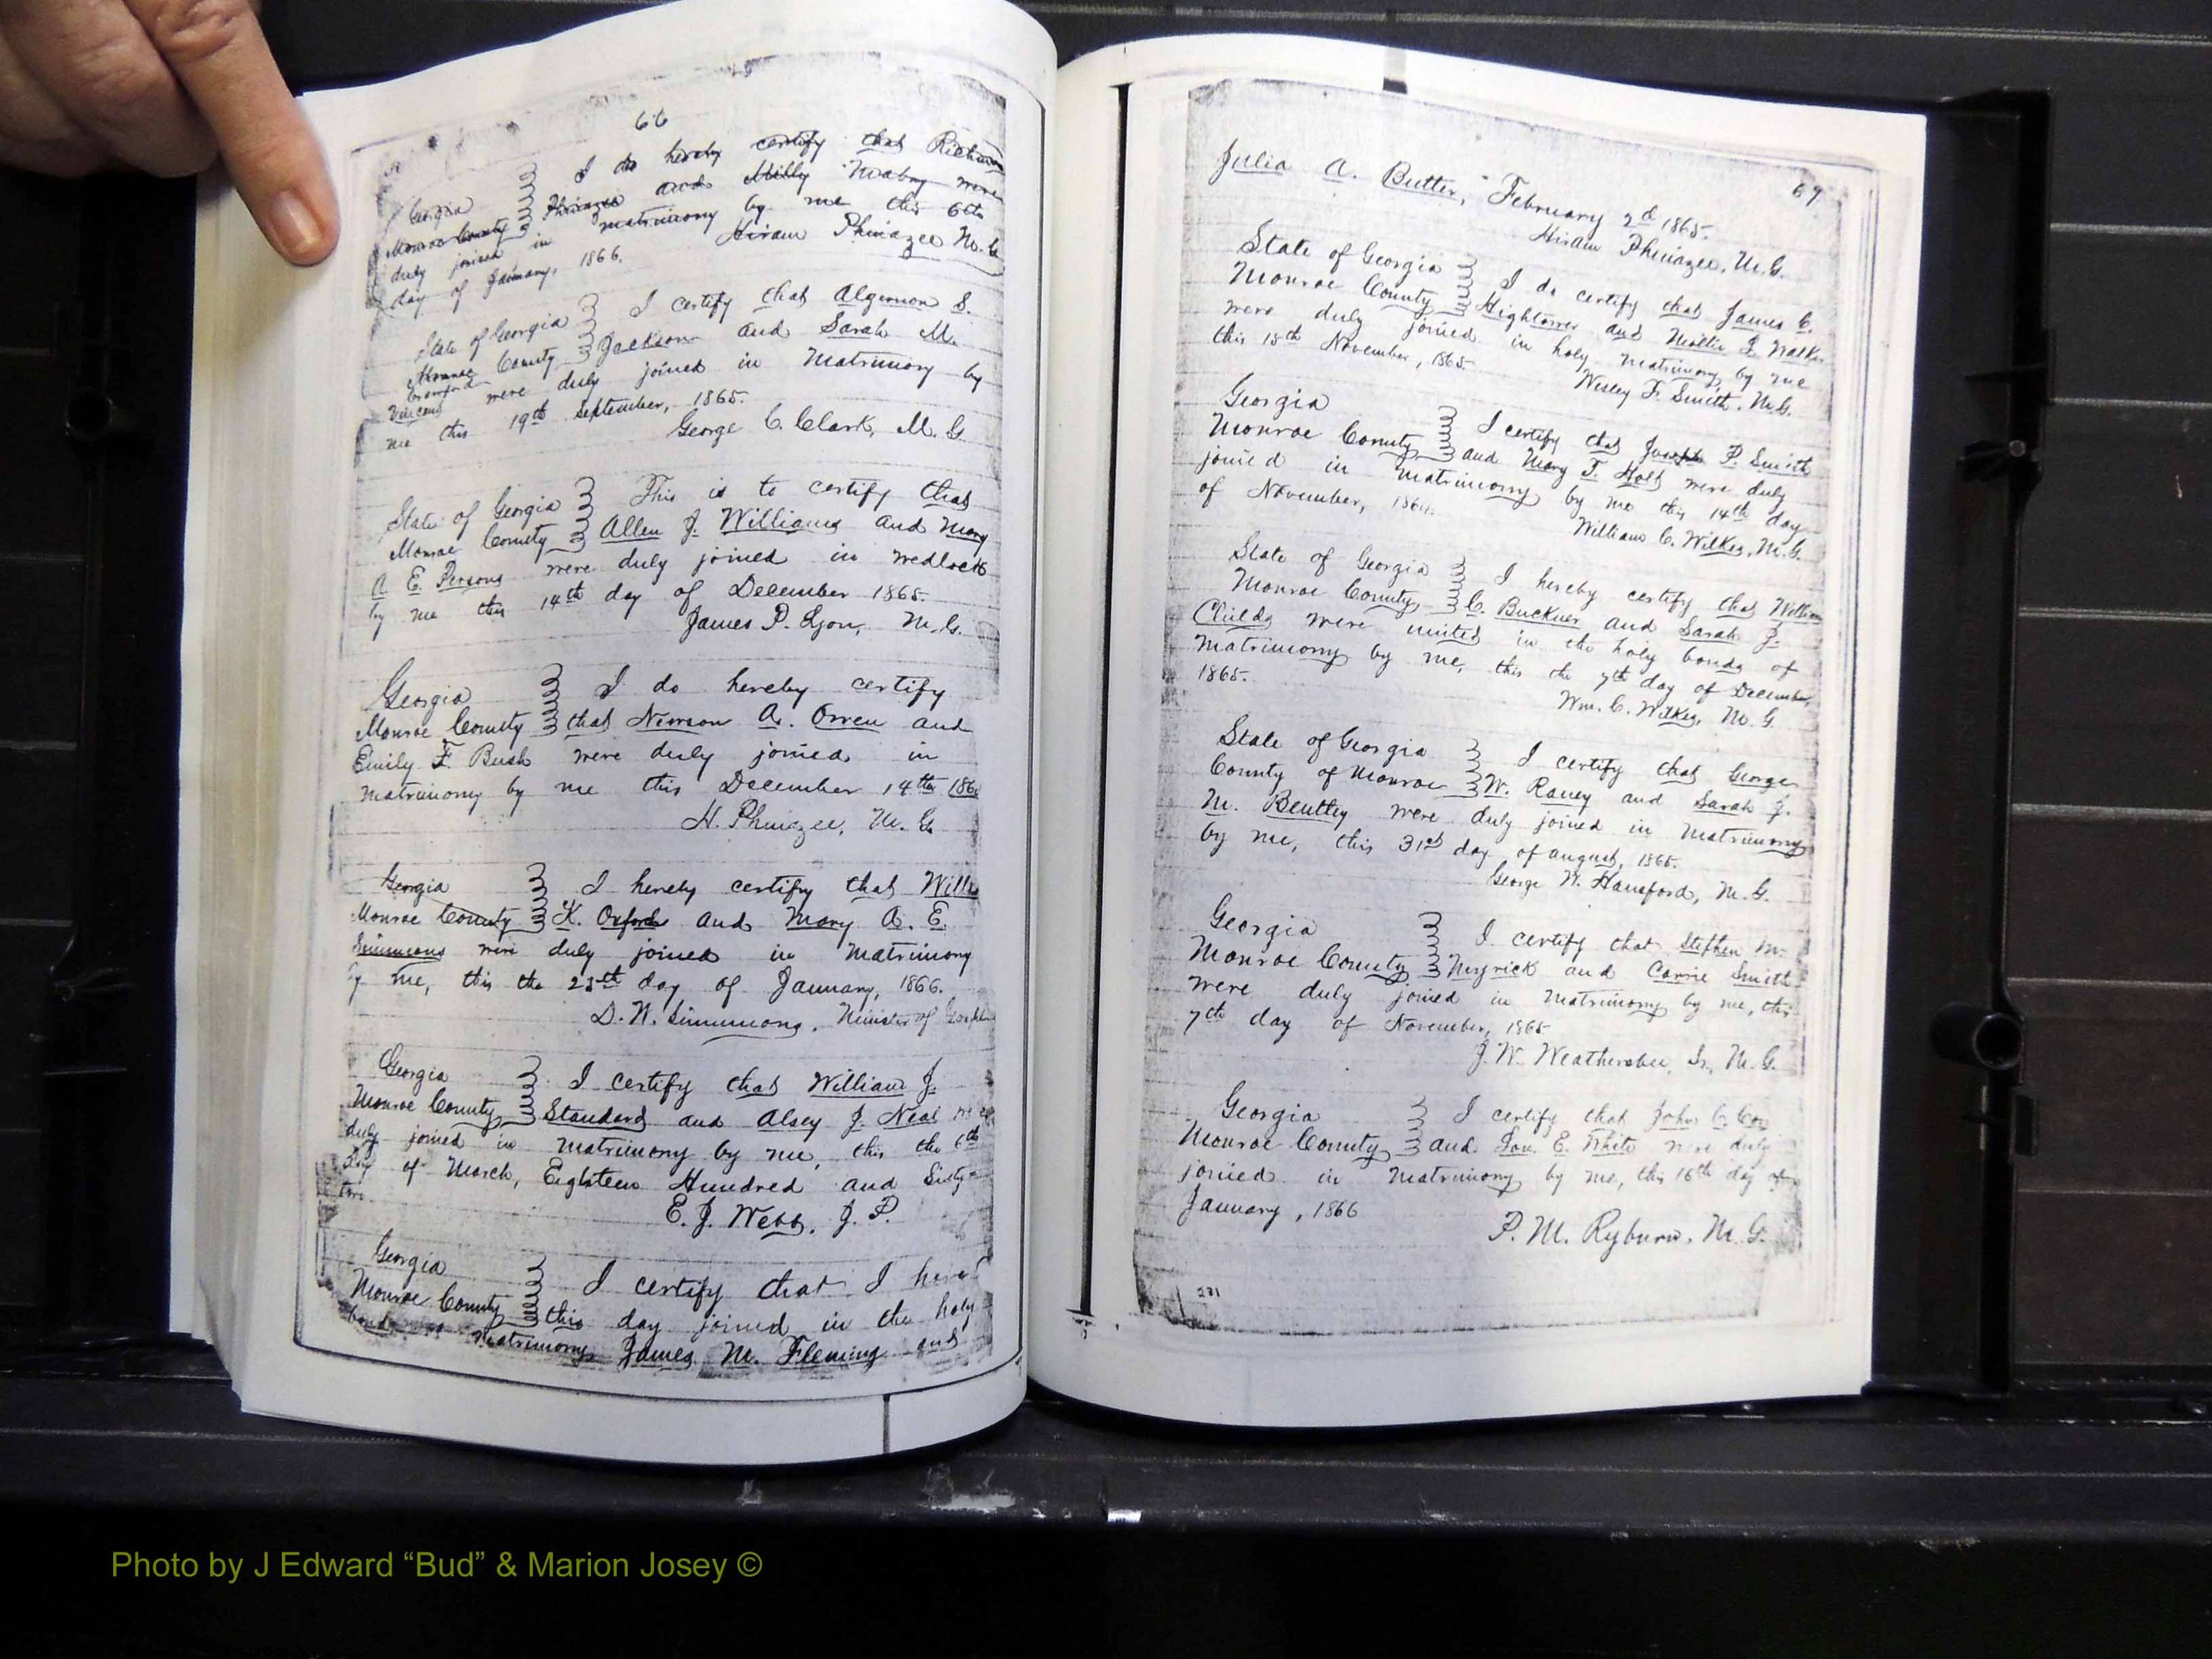 66
I do hereby certify that Richmond
Georgia
Monroe County Phinazee and Milly Mabry were
duly joined in matrimony by me this 6th
day of January, 1866.
Hiram Phinazee M.G.
State of Georgia I certify that Algernon S.
Monroe County Jackson and Sarah M.
Crawford
Vincent were duly joined in Matrimony by
me this 19th September, 1865.
George C. Clark, M.G.
State of Georgia This is to certify that
Monroe County Allen J. Williams and Mary
A E. Persons were duly joined in wedlock
by me this 14th day of December 1865.
James P. Lyon, M.G.
Georgia I do hereby certify
Monroe County that Newson A. Owen and
Emily F. Bush were duly joined in
matrimony by me this December 14th 186
H. Phinazee, M.G.
Georgia I hereby certify that Willis
Monroe County K. Oxford and Mary A. E.
Simmons were duly joined in Matrimony
by me, this the 25th day of January, 1866.
D.W. Simmons, Minister of Gospel
Georgia I certify that William J.
Monroe County Standard and Alsey J. Neal were
duly joined in matrimony by me, this the 6th
day of March, Eighteen Hundred and Sixty-
two.
E.J. Webb, J.P.
Georgia I certify that I have
Monroe County this day joined in the holy
bonds of Matrimony James M. Fleming and
67
Julia A. Butler, February 2d 1865.
Hiram Phinazee, M.G.
State of Georgia I do certify that James C.
Monroe County Hightower and Mollie L. Walker
were duly joined in holy matrimony by me
this 15th November, 1865.
Wesley F. Smith, M.G.
Georgia I certify that Joseph P. Smith
Monroe County and Mary T. Holt were duly
joined in Matrimony by me this 14th day
of November, 1864.
William C. Wilkes, M.G.
State of Georgia I hereby certify that William
Monroe County C. Buckner and Sarah J.
Childs were united in the holy bonds of
matrimony by me, this the 7th day of December,
1865.
Wm. C. Wilkes, M.G.
State of Georgia I certify that George
County of Monroe W. Raney and Sarah J.
M. Bentley were duly joined in Matrimony
by me, this 31st day of August, 1865.
George W. Hansford, M.G.
Georgia I certify that Stephen M.
Monroe County Myrick and Carrie Smith
were duly joined in Matrimony by me, this
7th day of November, 1865
J.W. Weathersbee, Sr., M.G.
Georgia I certify that John C. Cox
Monroe County and Lou. E. White were duly
joined in Matrimony by me, this 16th day of
January, 1866
P.M. Ryburn, M.G.
Photo by J Edward “Bud” & Marion Josey ©